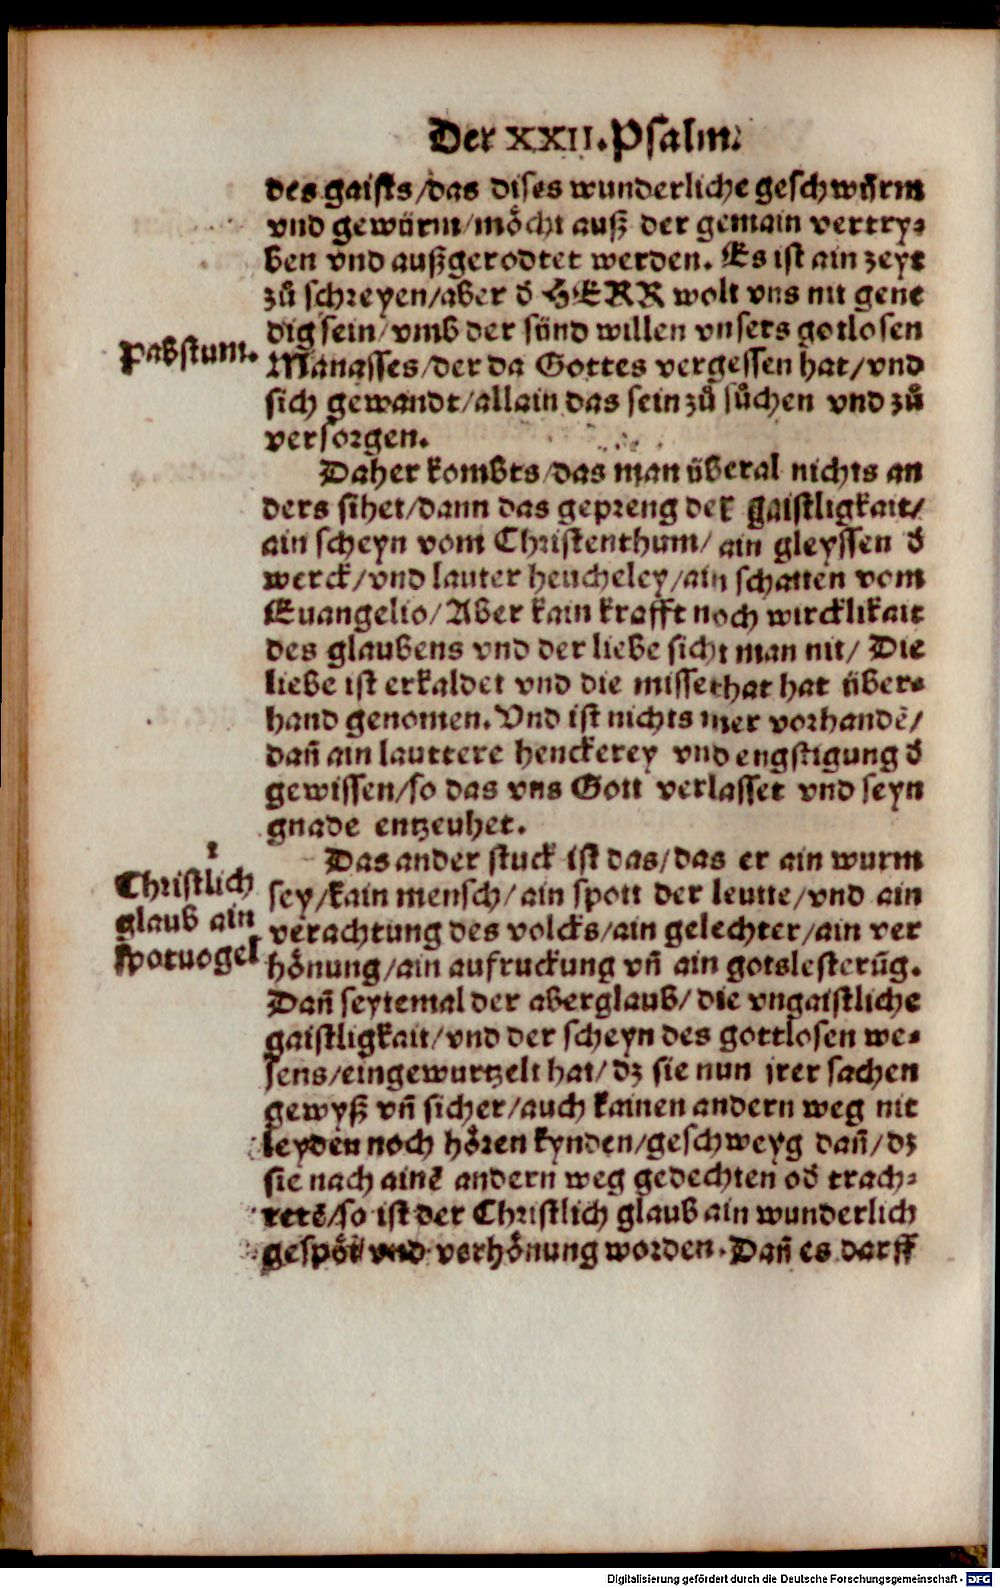 Der XXII. Psalm.
des gaists/das dises wunderliche geschwürm
vnd gewürm/möcht auß der gemain vertry⸗
ben vnd außgerodtet werden. Es ist ain zeyt
zů schreyen/aber d̄ HERR wolt vns nit gene
dig sein/vmb der sünd willen vnsers gotlosen
Pabstum.
Manasses/der da Gottes vergessen hat/vnd
sich gewandt/allain das sein zů sůchen vnd zů
versorgen.
Daher kombts/das man überal nichts an
ders sihet/dann das gepreng der gaistligkait/
ain scheyn vom Christenthum/ain gleyssen d̄
werck/vnd lauter heucheley/ain schatten vom
Euangelio/Aber kain krafft noch wircklikait
des glaubens vnd der liebe sicht man nit/Die
liebe ist erkaldet vnd die missethat hat über⸗
hand genomen. Vnd ist nichts mer vorhandē/
dañ ain lauttere henckerey vnd engstigung d̄
gewissen/so das vns Gott verlasset vnd seyn
gnade entzeuhet.
1
Christlich
glaub ain
spotuogel
Das ander stuck ist das/das er ain wurm
sey/kain mensch/ain spott der leutte/vnd ain
verachtung des volcks/ain gelechter/ain ver
hönung/ain aufruckung vñ ain gotslesterūg.
Dañ seytemal der aberglaub/die vngaistliche
gaistligkait/vnd der scheyn des gottlosen we⸗
sens/eingewurtzelt hat/dz sie nun jrer sachen
gewyß vñ sicher/auch kainen andern weg nit
leyden noch hören kynden/geschweyg dañ/dz
sie nach ainē andern weg gedechten od̄ trach⸗
tetē/so ist der Christlich glaub ain wunderlich
gespöt vnd verhönung worden. Dañ es darff
Digitalisierung gefördert durch die Deutsche Forschungsgemeinschaft - DFG